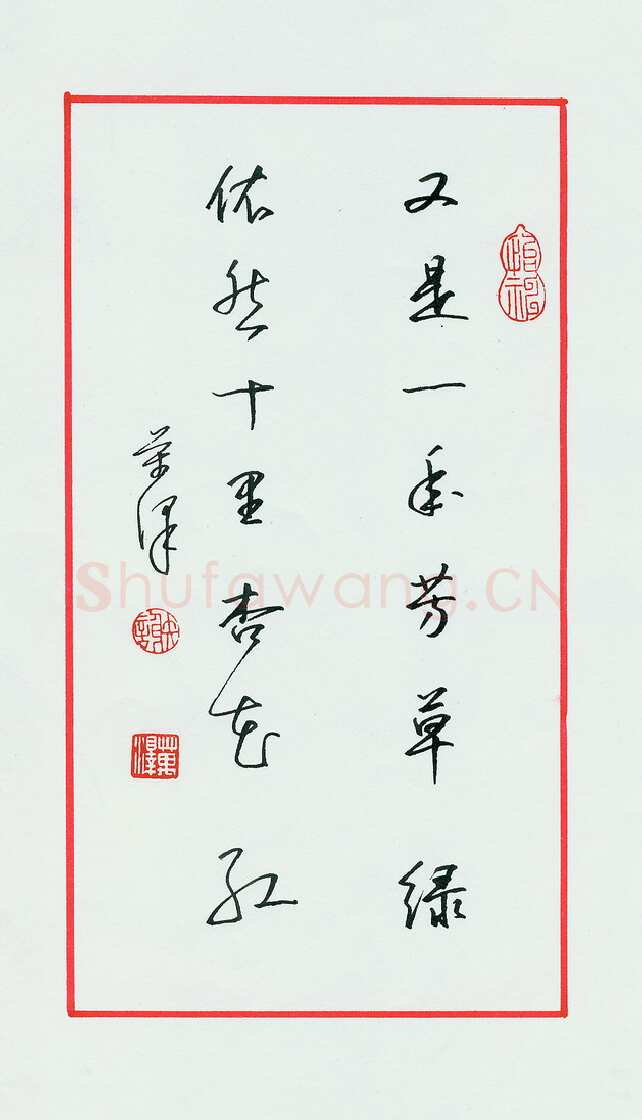 又是一年芳草绿
依然十里杏花红
万泽
Shufawang.CN